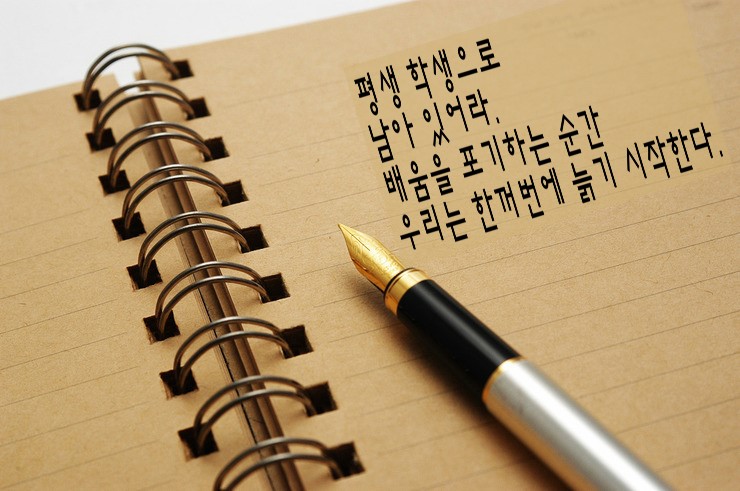 평생 학생으로
남아 있어라.
배움을 포기하는 순간
우리는 한꺼번에 늙기 시작한다.